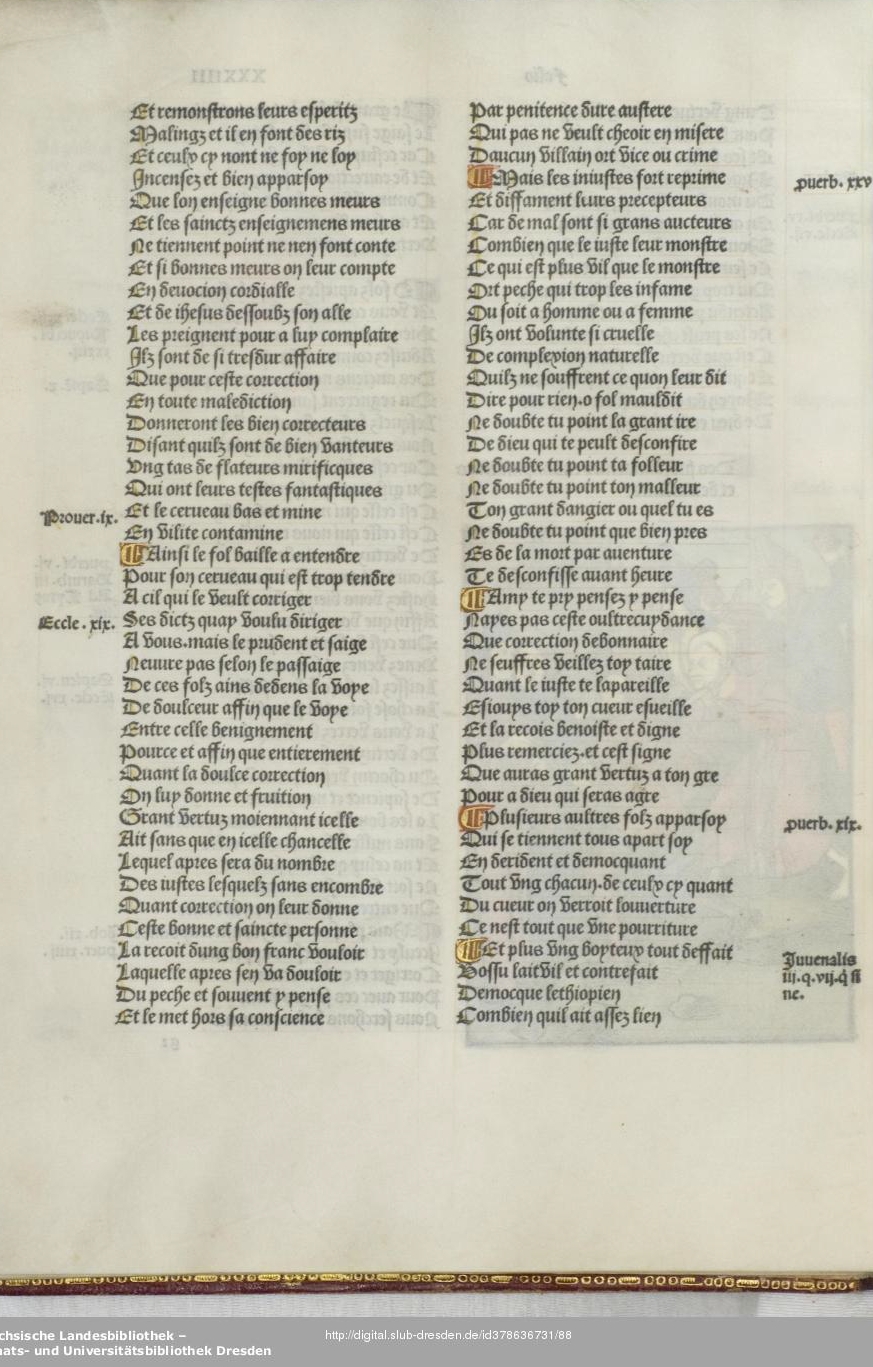 Et remonstrons leurs esperitz
Malingz et il en font des riz
Et ceulx cy nont ne foy ne loy
Incensez et bien apparsoy
Que lon enseigne bonnes meurs
Et les sainctz enseignemens meurs
Ne tiennent point ne nen font conte
Et si bonnes meurs on leur compte
En deuocion cordialle
Et de ihesus dessoubz son alle
Les preignent pour a luy complaire
Ilz sont de si tresdur affaire
Que pour ceste correction
En toute malediction
Donneront les bien correcteurs
Disant quilz sont de bien vanteurs
Vng tas de flateurs mirificques
Qui ont leurs testes fantastiques
Prouer.ix.
Et le cerueau bas et mine
En vilite contamine
Ainsi le fol baille a entendre
Pour son cerueau qui est trop tendre
A cil qui le veult corriger
Eccle. xix.
Ses dictz quay voulu diriger
A vous.mais le prudent et saige
Neuure pas selon le passaige
De ces folz ains dedens la voye
De doulceur affin que le voye
Entre celle benignement
Pource et affin que entierement
Quant la doulce correction
On luy donne et fruition
Grant vertuz moiennant icelle
Ait sans que en icelle chancelle
Lequel apres sera du nombre
Des iustes lesquelz sans encombre
Quant correction on leur donne
Ceste bonne et saincte personne
La recoit dung bon franc vouloir
Laquelle apres sen va douloir
Du peche et souuent y pense
Et le met hors sa conscience
Par penitence dure austere
Qui pas ne veult cheoir en misere
Daucun villain ort vice ou crime
Mais les iniustes fort reprime
puerb. xxv
Et diffament luurs precepteurs
Car de mal sont si grans aucteurs
Combien que le iuste leur monstre
Ce qui est plus vil que le monstre
Ort peche qui trop les infame
Ou soit a homme ou a femme
Ilz ont volunte si cruelle
De complexion naturelle
Quilz ne souffrent ce quon leur dit
Dire pour rien.o fol mauldit
Ne doubte tu point la grant ire
De dieu qui te peult desconfire
Ne doubte tu point ta folleur
Ne doubte tu point ton malleur
Ton grant dangier ou quel tu es
Ne doubte tu point que bien pres
Es de la mort par auenture
Te desconfisse auant heure
Amy te pry pensez y pense
Nayes pas ceste oultrecuydance
Que correction debonnaire
Ne seuffres veillez toy taire
Quant le iuste te lapareille
Esiouys toy ton cueur esueille
Et la recois benoiste et digne
Plus remerciez.et cest signe
Que auras grant vertuz a ton gre
Pour a dieu qui seras agre
Plusieurs aultres folz apparsoy
puerb. xix.
Qui se tiennent tous apart soy
En derident et democquant
Tout vng chacun.de ceulx cy quant
Du cueur on verroit louuerture
Ce nest tout que vne pourriture
Et plus vng boyteux tout deffait
Juuenalis
iii.q.vij.q̄ si
ne.
Bossu lait vil et contrefait
Democque lethiopien
Combien quil ait assez lien
chsische Landesbibliothek –
aats- und Universitätsbibliothek Dresden
http://digital.slub-dresden.de/id378636731/88